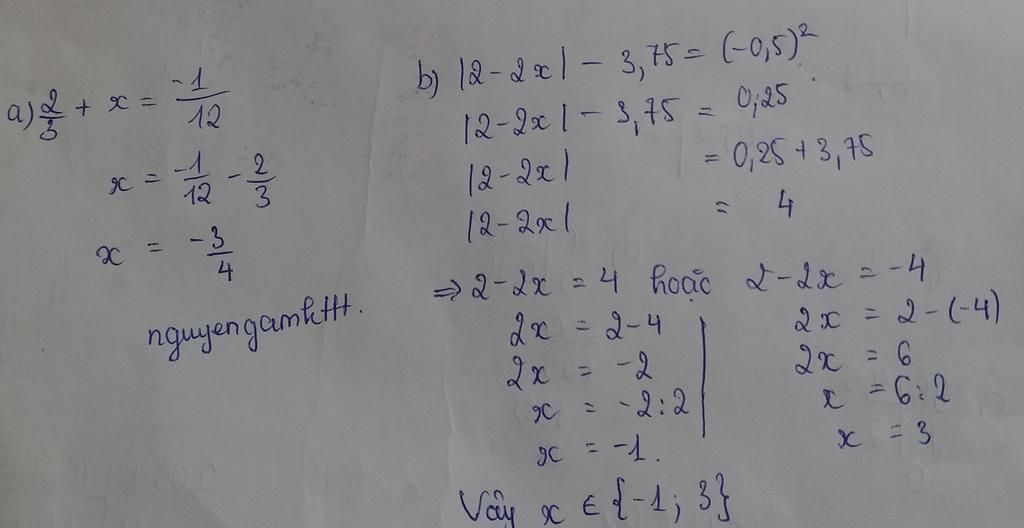 a) 2/3 + x = -1/12
x = -1/12 - 2/3
x = -3/4
nguyengamhtH.
b) |2-2x| - 3,75 = (-0,5)²
|2-2x| - 3,75 = 0,25
|2-2x| = 0,25 + 3,75
|2-2x| = 4
⇒ 2-2x = 4 hoặc 2-2x = -4
2x = 2-4 | 2x = 2-(-4)
2x = -2 | 2x = 6
x = -2:2 | x = 6:2
x = -1. | x = 3
Vây x ∈ {-1; 3}